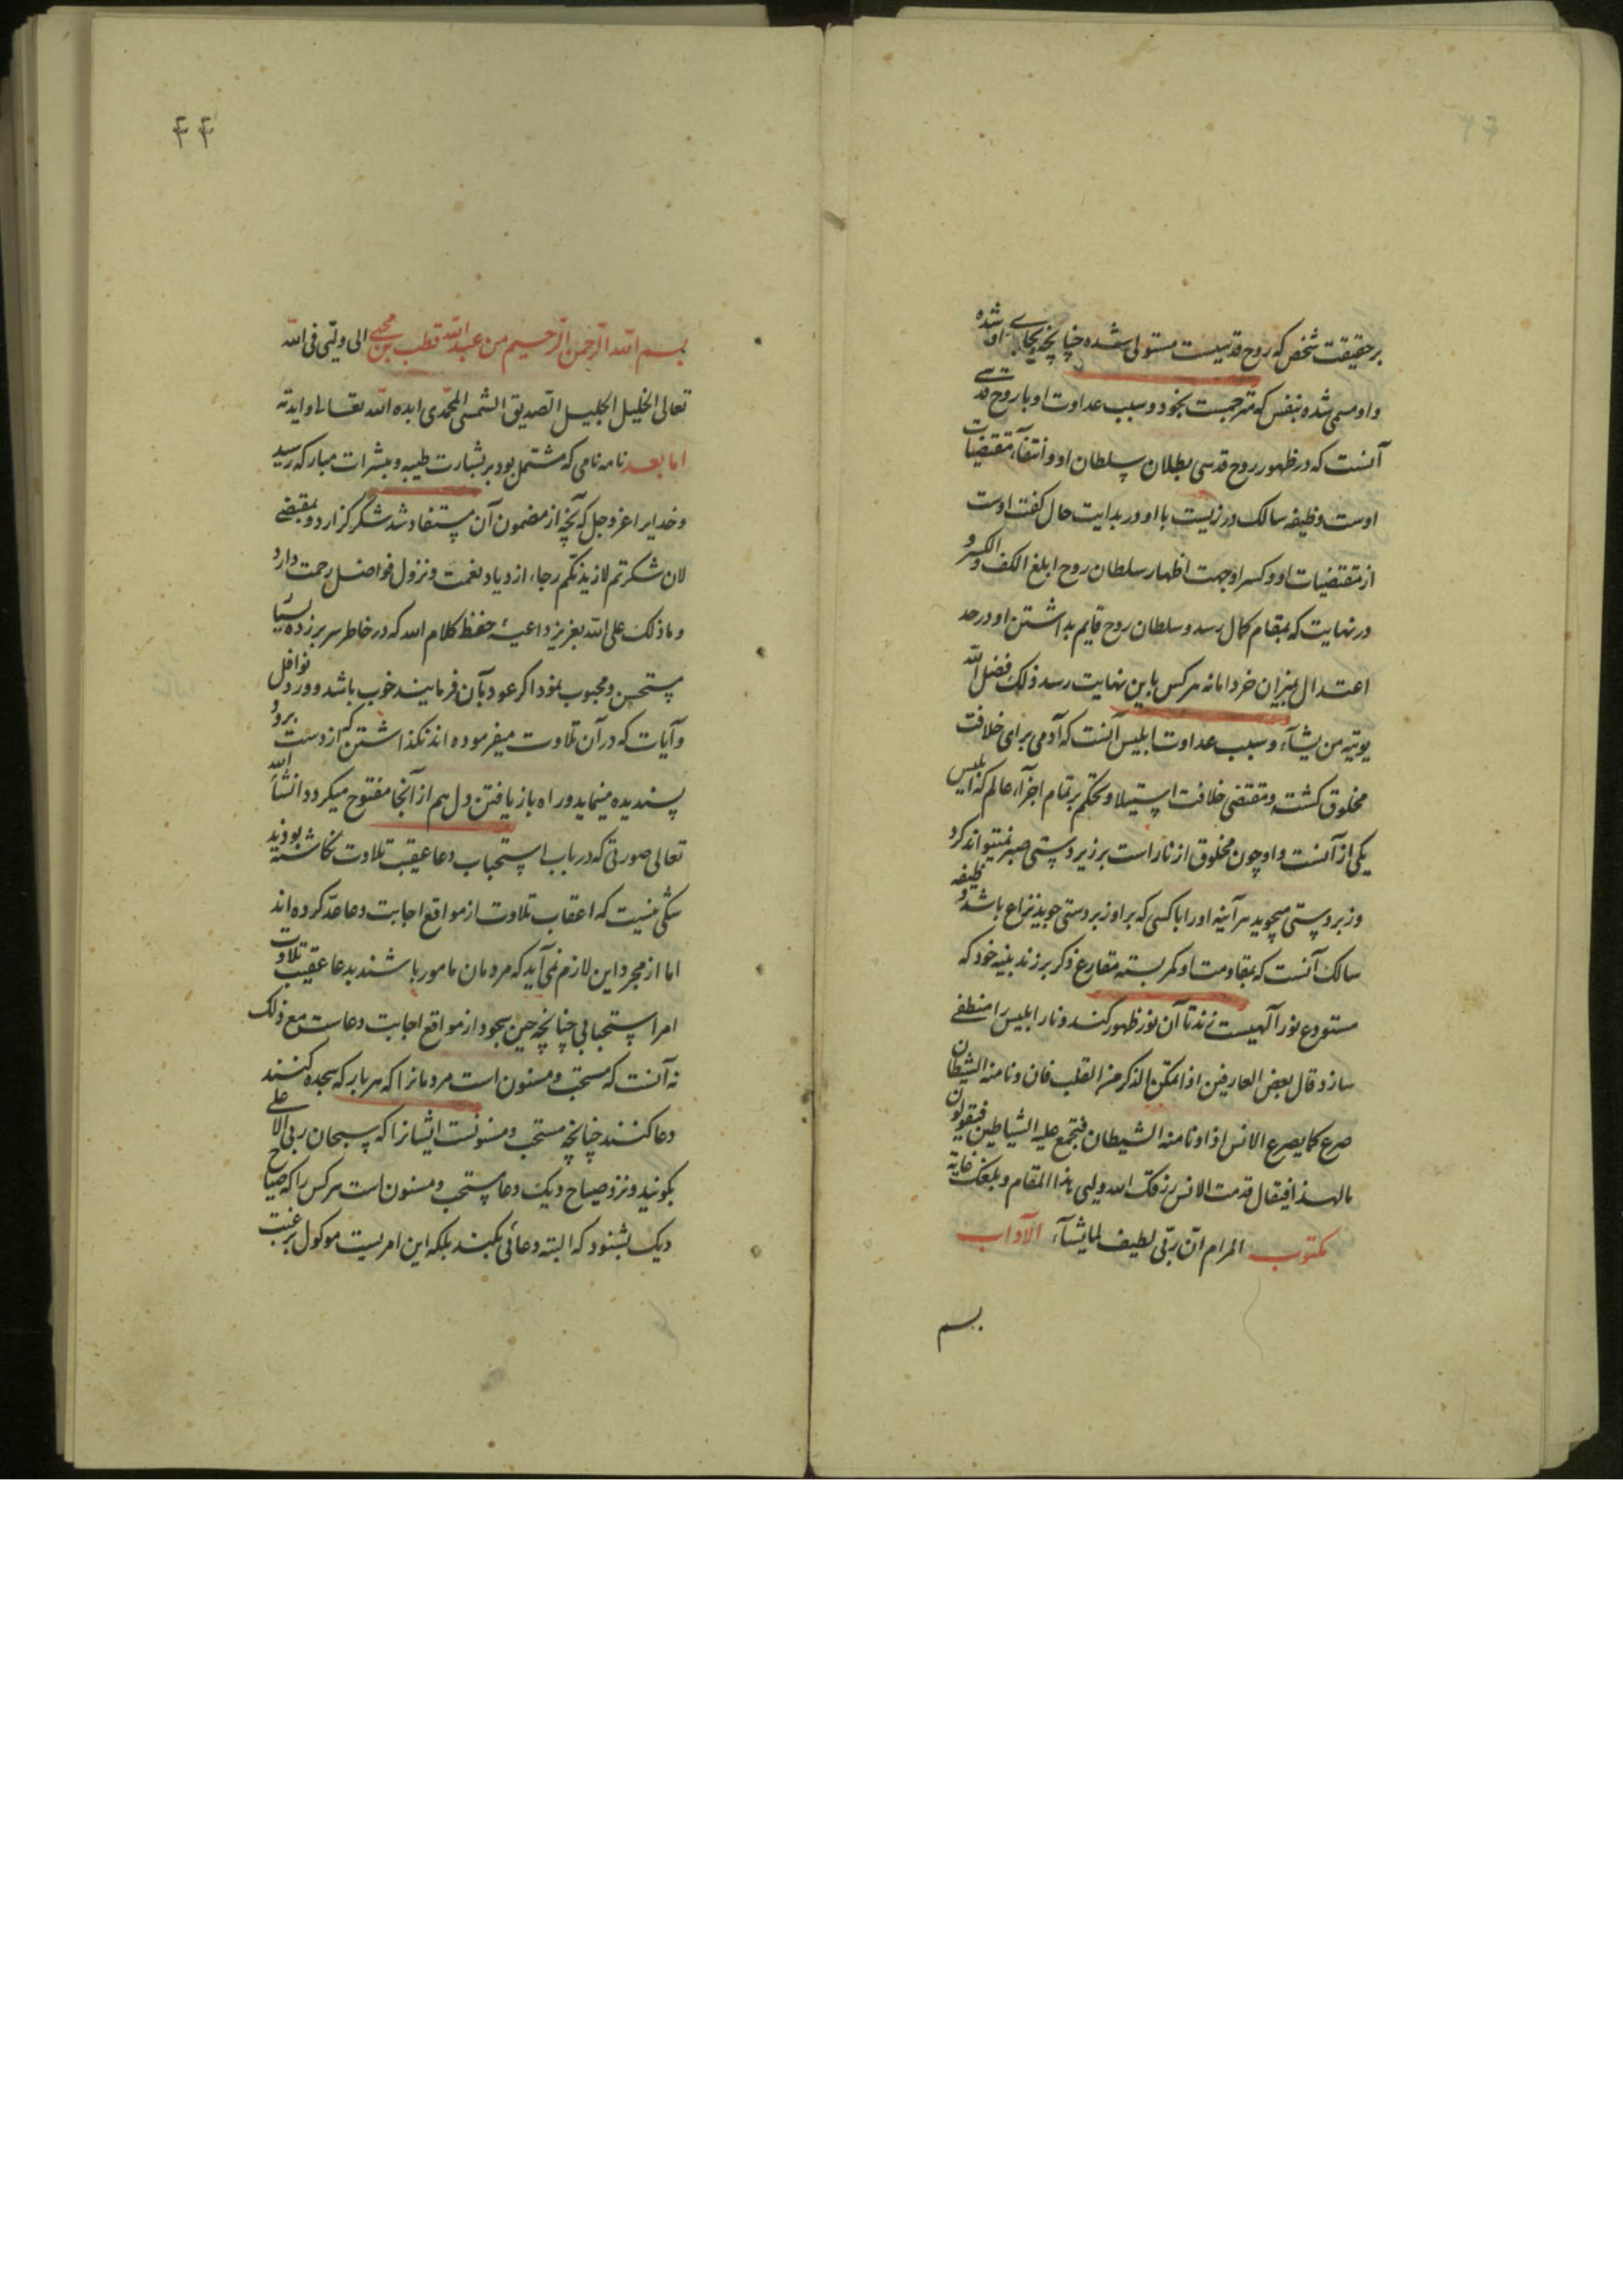 بر حقیقت شخص که روح قدسیست مستولی شده چنانچه بجای او شده
و او مسمی شده بنفس که مترجمست بخود و سبب عداوت او با روح قدسی
آنست که در ظهور روح قدسی بطلان سلطان او و انتفآء مقتضیات
اوست وظیفه سالک در زیست با او در بدایت حال کفت اوست
از مقتضیات او و کسر او جهت اظهار سلطان روح ابلغ الکف و الکسر و
در نهایت که بمقام کمال رسد و سلطان روح قایم بداشتن او در حد
اعتدال بمیزان خرد اما نه هر کس باین نهایت رسد ذلک فضل الله
یوتیه من یشآء و سبب عداوت ابلیس آنست که آدمی برای خلافت
مخلوق کشت و مقتضی خلافت استیلا و تحکم بر تمام اجزآء عالم که ابلیس
یکی از آنست و او چون مخلوق از نار است بر زیردستی صبر نمیتواند کرد
و زبردستی میجوید هرآینه او را با کسی که بر او زبردستی جوید نزاع باشد وظیفه
سالک آنست که بمقاومت او کمر بسته مقارع ذکر بر زند بینه خود که
مستودع نور آلهیست زند تا آن نور ظهور کند و نار ابلیس را منطفی
سازد و قال بعض العارفین اذا تمکن الذکر من القلب فان دنا منه الشیطان
صرع کما یصرع الانس اذا دنا منه الشیطان فتجمع علیه الشیاطین فیقولون
ما لهذا فیقال قد مت الانس رزقک الله ولیی هذا المقام و بلغک غایة
المرام ان ربی لطیف لما یشآء مکتوب الآداب
بسم
۴۴
بسم الله الرحمن الرحیم من عبد الله قطب بن محیی الی ولیی فی الله
تعالی الخلیل الجلیل الصدیق الشمس المحمدی ابده الله تعالی و ایدته
اما بعد نامه نامی که مشتمل بود بر بشارت طیبه و مبشرات مبارکه رسید
و خدایرا عز و جل که آنچه از مضمون آن مستفاد شد شکر گزارد و بمقتضی
لان شکرتم لازیدنکم رجاء ازدیاد نعمت و نزول فواضل رحمت دارد
و ما ذلک علی الله بعزیز داعیه حفظ کلام الله که در خاطر سر بر زده بسیار
مستحسن و محبوب نمود اگر عود بآن فرمایند خوب باشد و ورد نوافل
و آیات که در آن تلاوت میفرموده اند نکذاشتن که از دست برود
پسندیده مینماید و راه باز یافتن دل هم از آنجا مفتوح میکردد انشآء الله
تعالی صورتی که در باب استحباب دعا عقیب تلاوت نکاشته بودند
شکی نیست که اعقاب تلاوت از مواقع اجابت دعا عد کرده اند
اما از مجرد این لازم نمی آید که مردمان مامور باشند بدعا عقیب تلاوت
امر استحبابی چنانچه حین سجود از مواقع اجابت دعاست مع ذلک
نه آنست که مستحب و مسنون است مردمانرا که هر بار که سجده کنند
دعا کنند چنانچه مستحب و مسنونست ایشانرا که سبحان ربی الاعلی
بگویند و نزد صیاح دیک دعا مستحب و مسنون است هر کس را که صیاح
دیک بشنود که البته دعائی بکند بلکه این امریست موکول برغبت